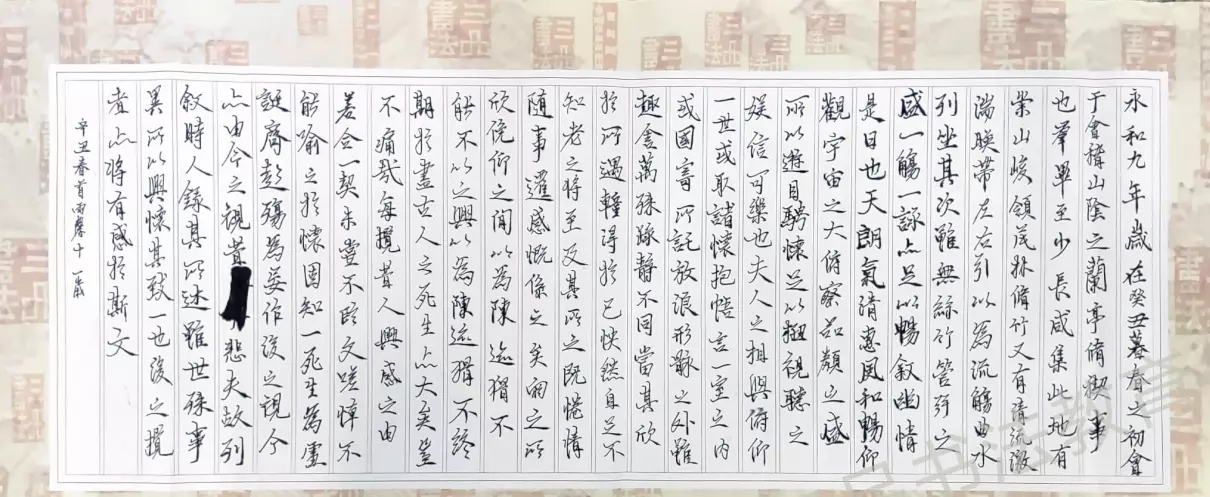 永和九年歲在癸丑暮春之初會
于會稽山陰之蘭亭脩禊事
也羣畢至少長咸集此地有
崇山峻領茂林脩竹又有清流激
湍暎帶左右引以為流觴曲水
列坐其次雖無絲竹管弦之
盛一觴一詠亦足以暢敘幽情
是日也天朗氣清惠風和暢仰
觀宇宙之大俯察品類之盛
所以遊目騁懷足以極視聽之
娛信可樂也夫人之相與俯仰
一世或取諸懷抱悟言一室之內
或因寄所託放浪形骸之外雖
趣舍萬殊躁静不同當其欣
於所遇蹔得於己快然自足不
知老之將至及其所之既惓情
隨事遷感慨係之矣向之所
欣俛仰之閒以為陳迹猶不
能不以之興以為陳迹猶不終
期於盡古人云死生亦大矣豈
不痛哉每攬昔人興感之由
若合一契未嘗不臨文嗟悼不
能喻之於懷固知一死生為虛
誕齊彭殤為妄作後之視今
亦由今之視昔悲夫故列
敘時人錄其所述雖世殊事
異所以興懷其致一也後之攬
者亦將有感於斯文
辛丑春首十一
书法教育